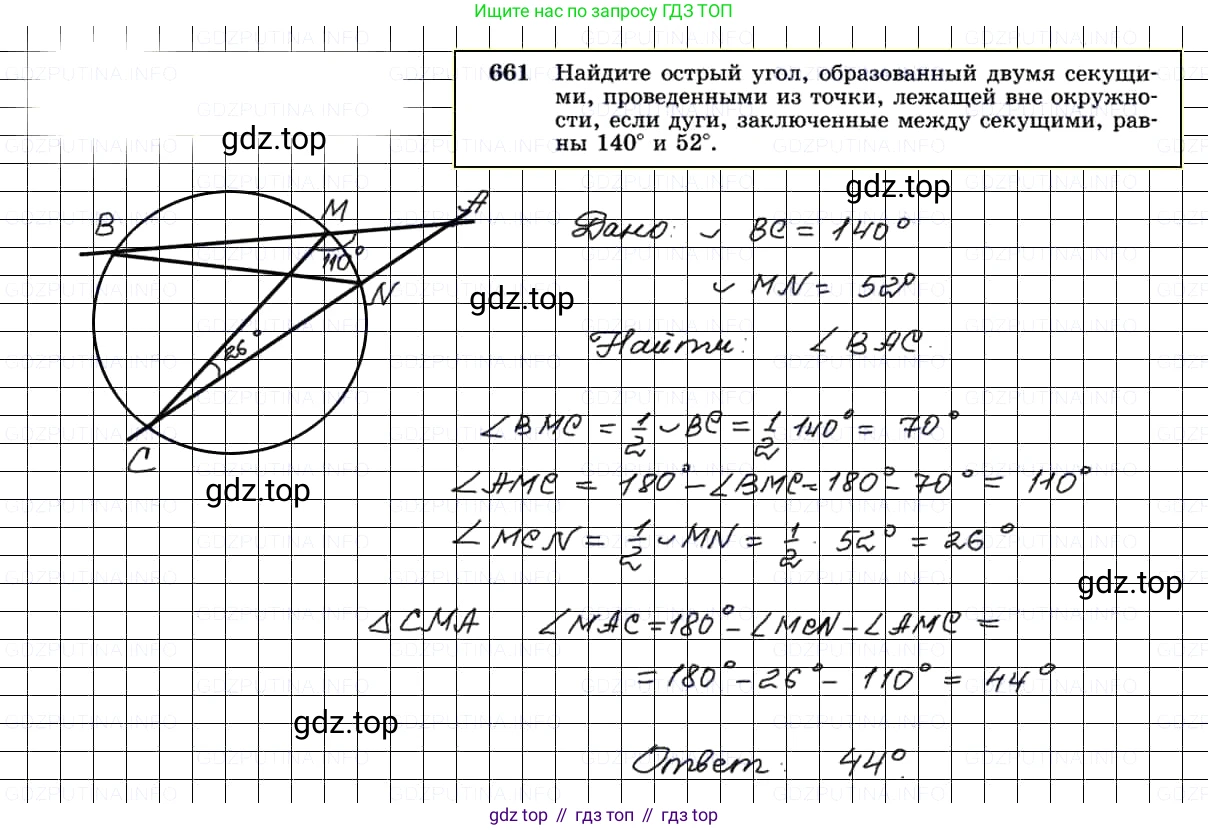 Ищите нас по запросу ГДЗ ТОП
661 Найдите острый угол, образованный двумя секущи-
ми, проведенными из точки, лежащей вне окружно-
сти, если дуги, заключенные между секущими, рав-
ны 140° и 52°.
gdz.top
gdz.top
B
M
A
110°
N
26°
C
gdz.top
gdz.top
Дано: ◡ BC = 140°
◡ MN = 52°
Найти: ∠ BAC.
∠BMC = 1/2 ◡ BC = 1/2 140° = 70°
∠AMC = 180° - ∠BMC = 180° - 70° = 110°
∠MCN = 1/2 ◡ MN = 1/2 · 52° = 26°
gdz.top
△CMA ∠MAC = 180° - ∠MCN - ∠AMC =
= 180° - 26° - 110° = 44°
gdz.top
Ответ: 44°.
gdz top // гдз топ // gdz top
GDZPUTINA.INFO